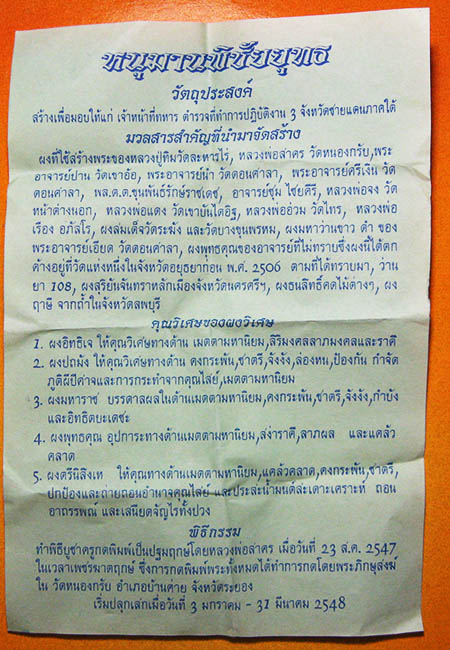 หนุมานพิชัยยุทธ
วัตถุประสงค์
สร้างเพื่อมอบให้แก่ เจ้าหน้าที่ทหาร ตำรวจที่ทำการปฏิบัติงาน 3 จังหวัดชายแดนภาคใต้
มวลสารสำคัญที่นำมาจัดสร้าง
ผงที่ใช้สร้างพระของหลวงปู่ทิมวัดละหารไร่, หลวงพ่อสาคร วัดหนองกรับ,พระ
อาจารย์ปาน วัดเขาอ้อ, พระอาจารย์นำ วัดดอนศาลา, พระอาจารย์ศรีเงิน วัด
ดอนศาลา, พล.ต.ต.ขุนพันธ์รักษ์ราชเดช, อาจารย์ชุ่ม ไชยคีรี, หลวงพ่อจง วัด
หน้าต่างนอก, หลวงพ่อแดง วัดเขาบันไดอิฐ, หลวงพ่ออ่วม วัดไทร, หลวงพ่อ
เรือง อภัสโร, ผงสมเด็จวัดระฆัง และวัดบางขุนพรหม, ผงมหาว่านขาว ดำ ของ
พระอาจารย์เอียด วัดดอนศาลา, ผงพุทธคุณของอาจารย์ที่ไม่ทราบซึ่งผงนี้ได้ตก
ค้างอยู่ที่วัดแห่งหนึ่งในจังหวัดอยุธยาก่อน พ.ศ. 2506 ตามที่ได้ทราบมา, ว่าน
ยา 108, ผงสุริยันจันทราหลักเมืองจังหวัดนครศรีฯ, ผงธนสิทธิ์คดไม้ต่างๆ, ผง
ฤาษี จากถ้ำในจังหวัดลพบุรี
คุณวิเศษของผงวิเศษ
1. ผงอิทธิเจ ให้คุณวิเศษทางด้าน เมตตามหานิยม,สิริมงคลลาภมงคลและราศี
2. ผงปถมัง ให้คุณวิเศษทางด้าน คงกระพัน,ชาตรี,จังงัง,ล่องหน,ป้องกัน กำจัด
ภูติผีปีศาจและการกระทำจากคุณไสย์,เมตตามหานิยม
3. ผงมหาราช บรรดาลผลในด้านเมตตามหานิยม,คงกระพัน,ชาตรี,จังงัง,กำบัง
และอิทธิตบะเตชะ
4. ผงพุทธคุณ อุปการะทางด้านเมตตามหานิยม,สง่าราศี,ลาภผล และแคล้ว
คลาด
5. ผงตรีนิสิงเห ให้คุณทางด้านเมตตามหานิยม,แคล้วคลาด,คงกระพัน,ชาตรี,
ปกป้องและถ่ายถอนอำนาจคุณไสย์ และประสะน้ำมนต์สะเดาะเคราะห์ ถอน
อาถรรพณ์ และเสนียดจัญไรทั้งปวง
พิธีกรรม
ทำพิธีบูชาครูกดพิมพ์เป็นปฐมฤกษ์โดยหลวงพ่อสาคร เมื่อวันที่ 23 ส.ค. 2547
ในเวลาเพชรฆาตฤกษ์ ซึ่งการกดพิมพ์พระทั้งหมดได้ทำการกดโดยพระภิกษุสงฆ์
ใน วัดหนองกรับ อำเภอบ้านค่าย จังหวัดระยอง
เริ่มปลุกเสกเมื่อวันที่ 3 มกราคม - 31 มีนาคม 2548